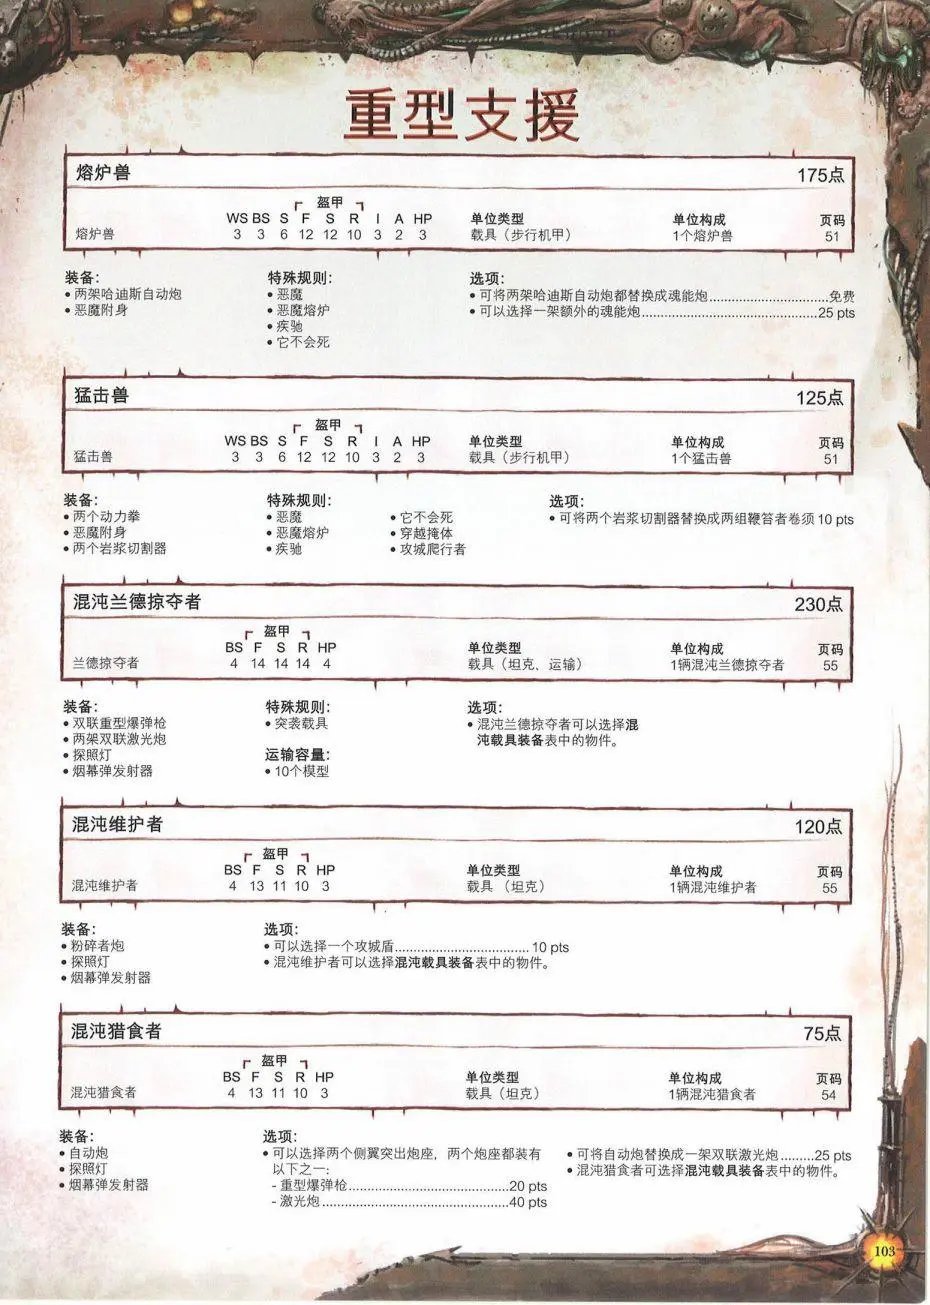 重型支援
熔炉兽 175点
盔甲
WS BS S F S R I A HP 单位类型 单位构成 页码
熔炉兽 3 3 6 12 12 10 3 2 3 载具（步行机甲） 1个熔炉兽 51
装备： 特殊规则： 选项：
• 两架哈迪斯自动炮 • 恶魔 • 可将两架哈迪斯自动炮都替换成魂能炮..............................免费
• 恶魔附身 • 恶魔熔炉 • 可以选择一架额外的魂能炮..............................25 pts
• 疾驰
• 它不会死
猛击兽 125点
盔甲
WS BS S F S R I A HP 单位类型 单位构成 页码
猛击兽 3 3 6 12 12 10 3 2 3 载具（步行机甲） 1个猛击兽 51
装备： 特殊规则： 选项：
• 两个动力拳 • 恶魔 • 它不会死 • 可将两个岩浆切割器替换成两组鞭笞者卷须 10 pts
• 恶魔附身 • 恶魔熔炉 • 穿越掩体
• 两个岩浆切割器 • 疾驰 • 攻城爬行者
混沌兰德掠夺者 230点
盔甲
BS F S R HP 单位类型 单位构成 页码
兰德掠夺者 4 14 14 14 4 载具（坦克、运输） 1辆混沌兰德掠夺者 55
装备： 特殊规则： 选项：
• 双联重型爆弹枪 • 突袭载具 • 混沌兰德掠夺者可以选择混
• 两架双联激光炮 沌载具装备表中的物件。
• 探照灯 运输容量：
• 烟幕弹发射器 • 10个模型
混沌维护者 120点
盔甲
BS F S R HP 单位类型 单位构成 页码
混沌维护者 4 13 11 10 3 载具 （坦克） 1辆混沌维护者 55
装备： 选项：
• 粉碎者炮 • 可以选择一个攻城盾.................................... 10 pts
• 探照灯 • 混沌维护者可以选择混沌载具装备表中的物件。
• 烟幕弹发射器
混沌猎食者 75点
盔甲
BS F S R HP 单位类型 单位构成 页码
混沌猎食者 4 13 11 10 3 载具（坦克） 1辆混沌猎食者 54
装备： 选项：
• 自动炮 • 可以选择两个侧翼突出炮座，两个炮座都装有 • 可将自动炮替换成一架双联激光炮.........25 pts
• 探照灯 以下之一： • 混沌猎食者可选择混沌载具装备表中的物件。
• 烟幕弹发射器 - 重型爆弹枪...........................................20 pts
- 激光炮..................................................40 pts
103